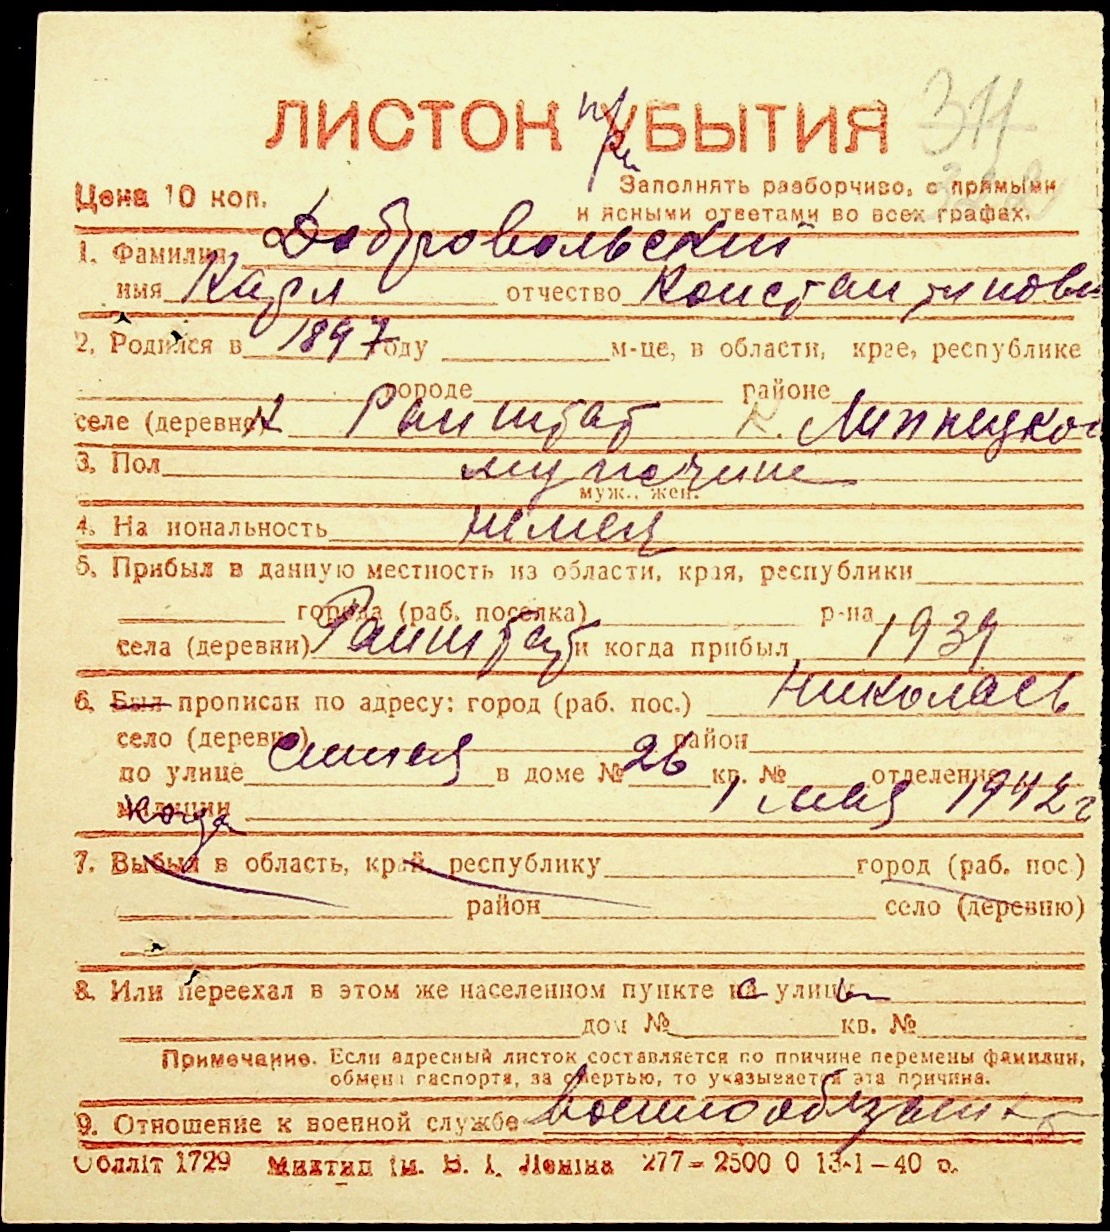 ЛИСТОК при УБЫТИЯ 311
Цена 10 коп. Заполнять разборчиво, с прямыми
и ясными ответами во всех графах.
1. Фамилия Добровольский
имя Карл отчество Константинови
2. Родился в 1897 году м-це, в области, крае, республике
городе районе
селе (деревне) к Ранштат К. Липпецкой
3. Пол мужчина
муж., жен.
4. На иональность немец
5. Прибыл в данную местность из области, края, республики
города (раб. поселка) р-на
села (деревни) Ранштат и когда прибыл 1939
6. Был прописан по адресу: город (раб. пос.) Николаев
село (деревня) район
по улице Синяя в доме № 26 кв. № отделение
милиции когда 1 мая 1942 г
7. Выбыл в область, край, республику город (раб. пос.)
район село (деревню)
8. Или переехал в этом же населенном пункте на улицу
дом № кв. №
Примечание. Если адресный листок составляется по причине перемены фамилии,
обмена паспорта, за смертью, то указывается эта причина.
9. Отношение к военной службе военнообязан
Облліт 1729 Миктип ім. В. І. Леніна 277—2500 0 13-1—40 р.